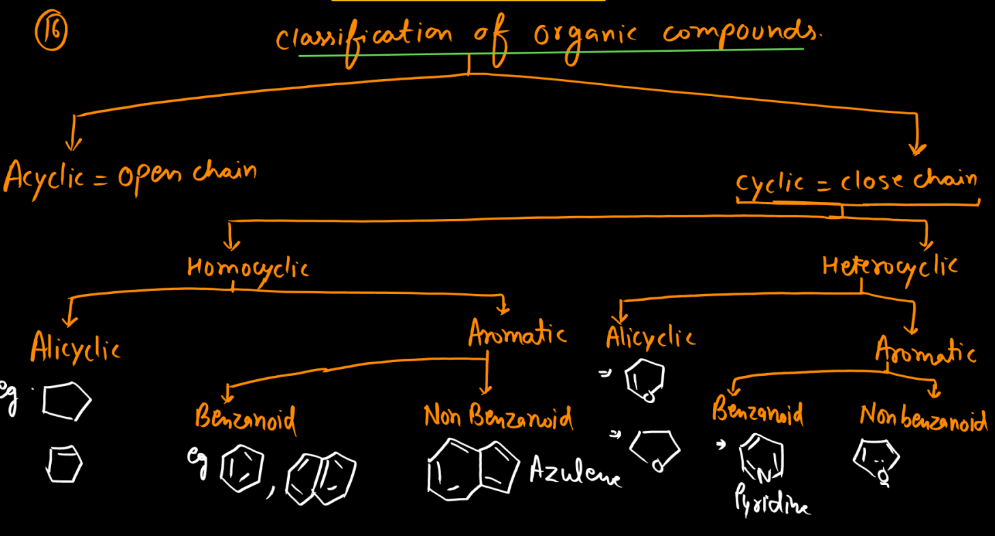 16
Classification of organic compounds.
Acyclic = open chain
cyclic = close chain
Homocyclic
Heterocyclic
Alicyclic
Aromatic
Alicyclic
Aromatic
eg.
Benzanoid
Non Benzanoid
Benzanoid
Non benzanoid
eg
,
Azulene
O
O
N
Pyridine
O